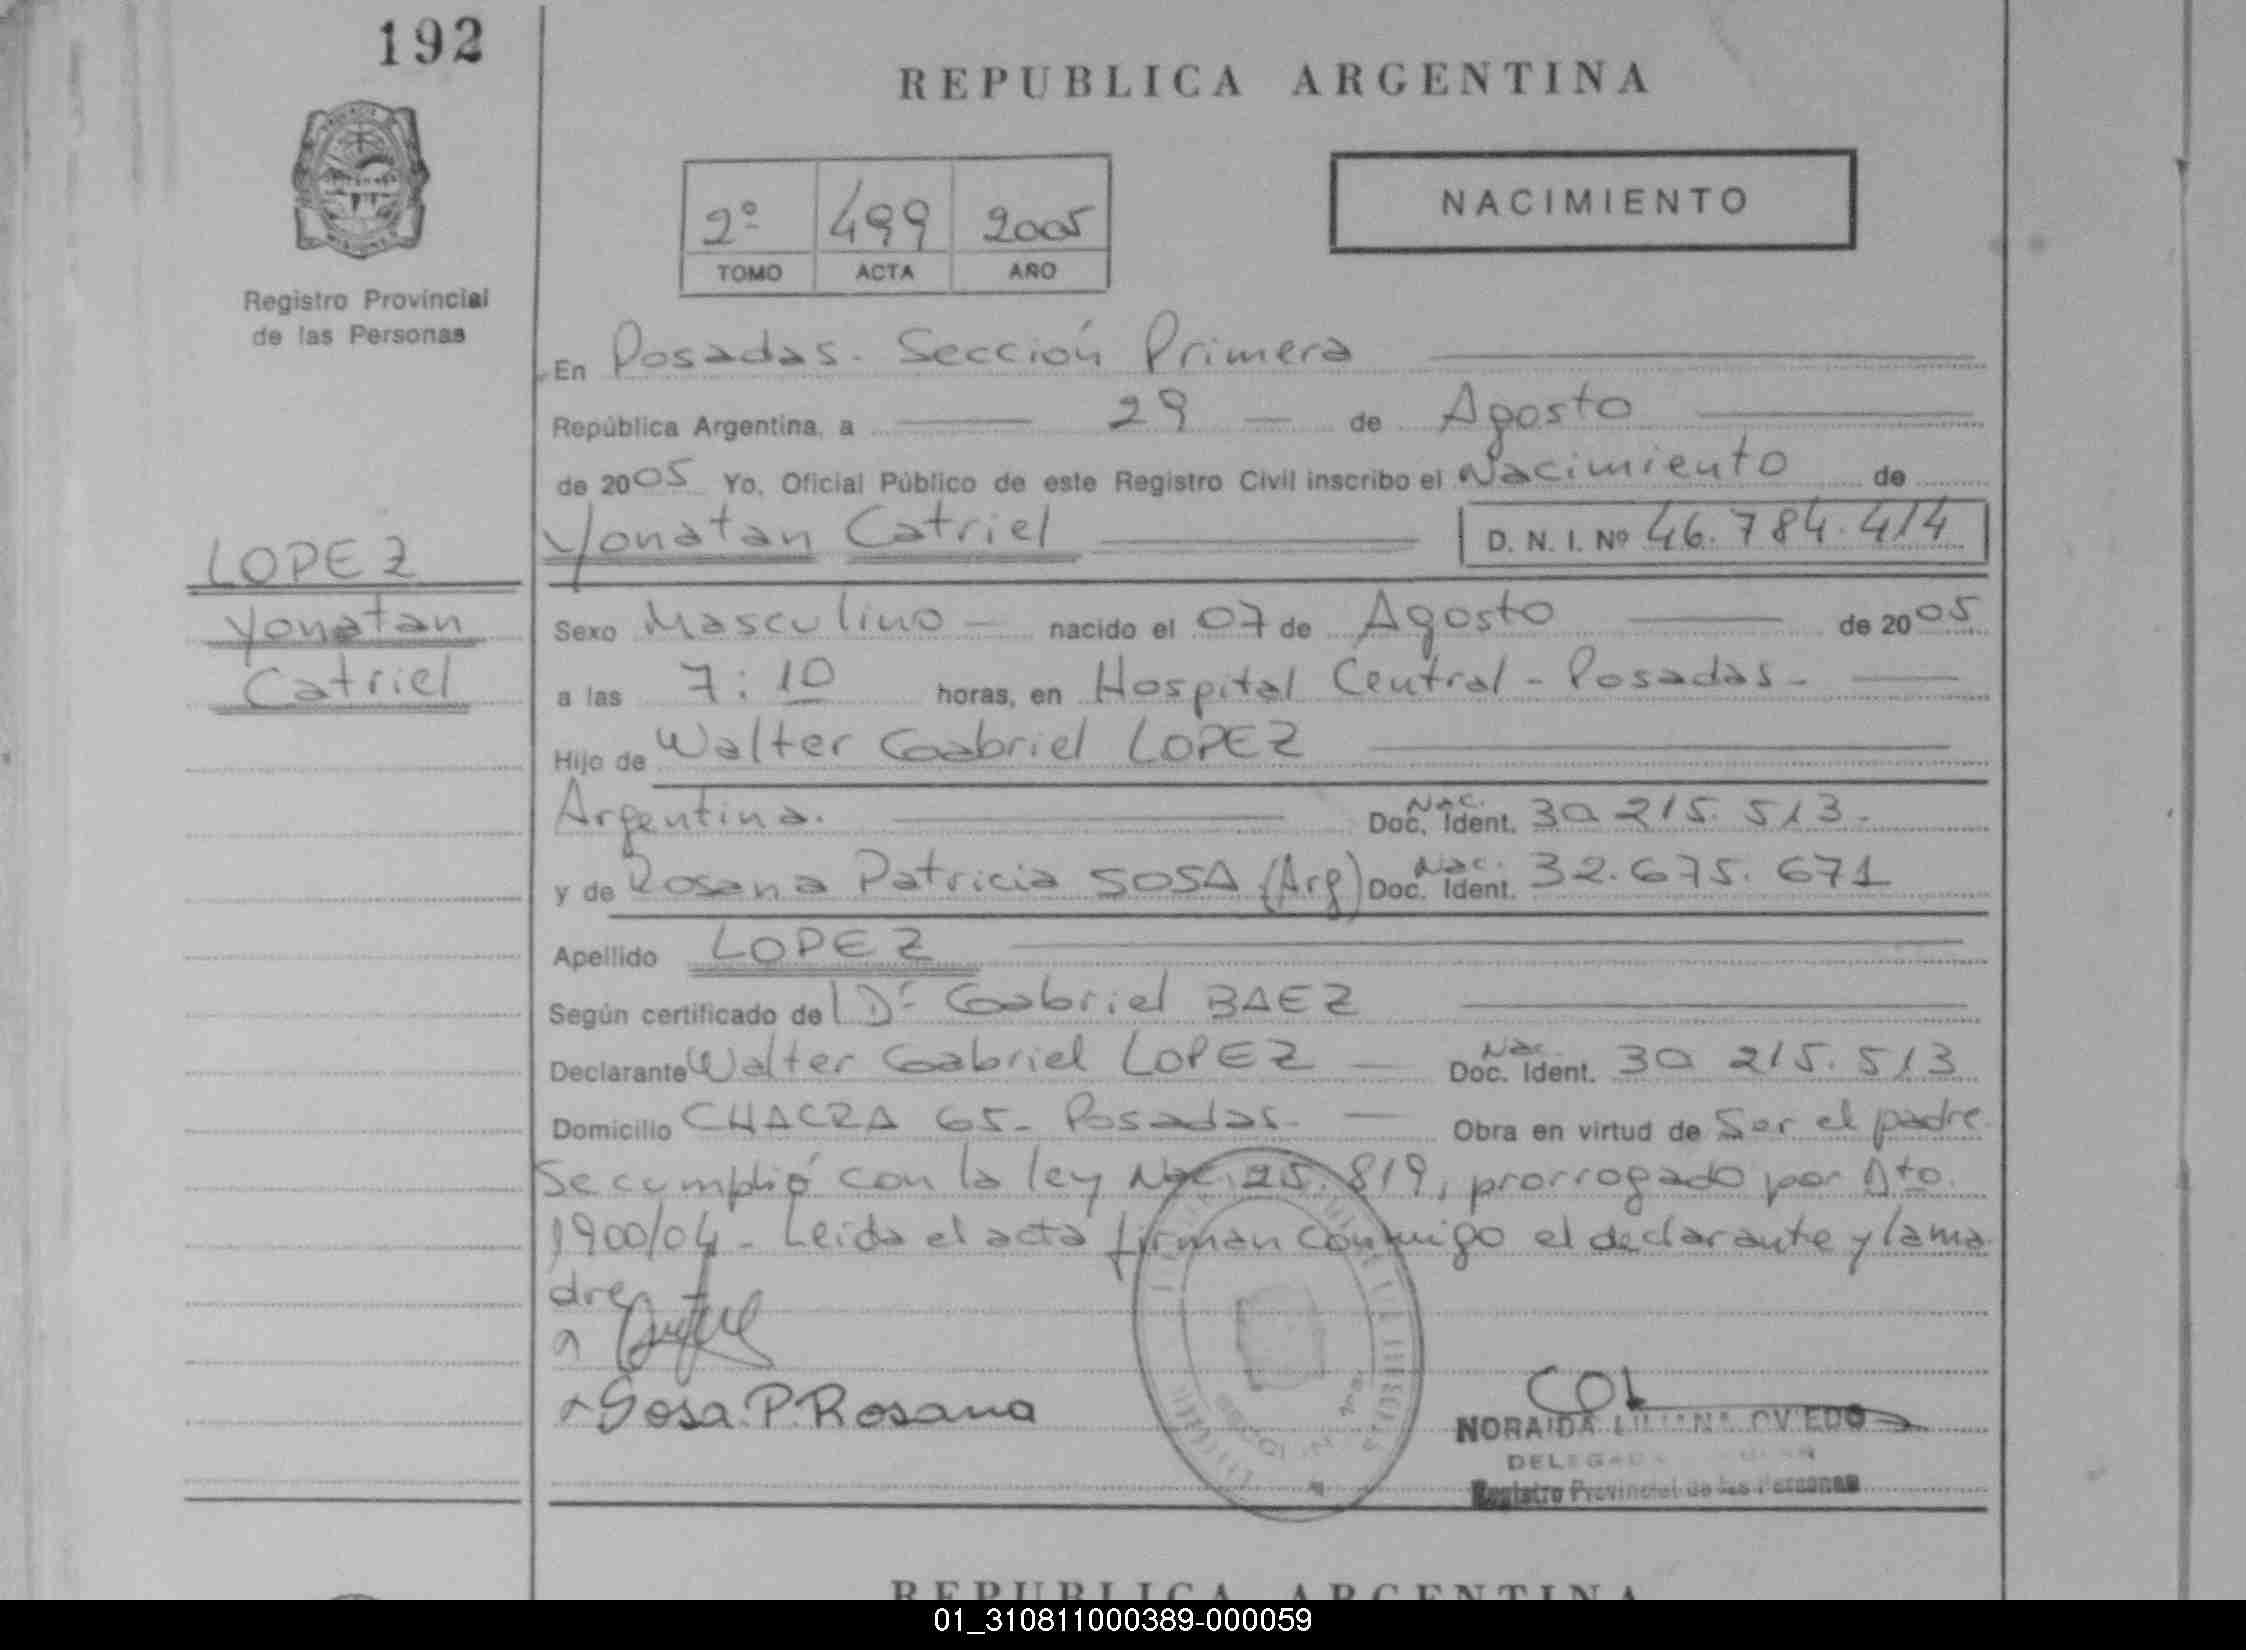 192
REPUBLICA ARGENTINA
2º 499 2005
TOMO ACTA AÑO
NACIMIENTO
Registro Provincial
de las Personas
En Posadas. Sección Primera
República Argentina, a 29 de Agosto
de 2005 Yo, Oficial Público de este Registro Civil inscribo el Nacimiento de
Yonatan Catriel D. N. I. Nº 46.784.414
LOPEZ
Yonatan
Catriel
Sexo Masculino nacido el 07 de Agosto de 2005
a las 7:10 horas, en Hospital Central - Posadas -
Hijo de Walter Gabriel LOPEZ
Argentina. Nac. Doc. Ident. 30 215.513.
y de Rosana Patricia SOSA (Arg) Nac. Doc. Ident. 32.675.671
Apellido LOPEZ
Según certificado de Dr Gabriel BAEZ
Declarante Walter Gabriel LOPEZ Nac. Doc. Ident. 30 215.513
Domicilio CHACRA 65 - Posadas. Obra en virtud de Ser el padre
Se cumplió con la ley Nac. 25.819, prorrogado por Dto.
1900/04 - Leida el acta firman conmigo el declarante y la ma
dre
Sosa P. Rosana
NORAIDA LILIANA OVIEDO
Registro Provincial de las Personas
REPUBLICA ARGENTINA
01_310811000389-000059